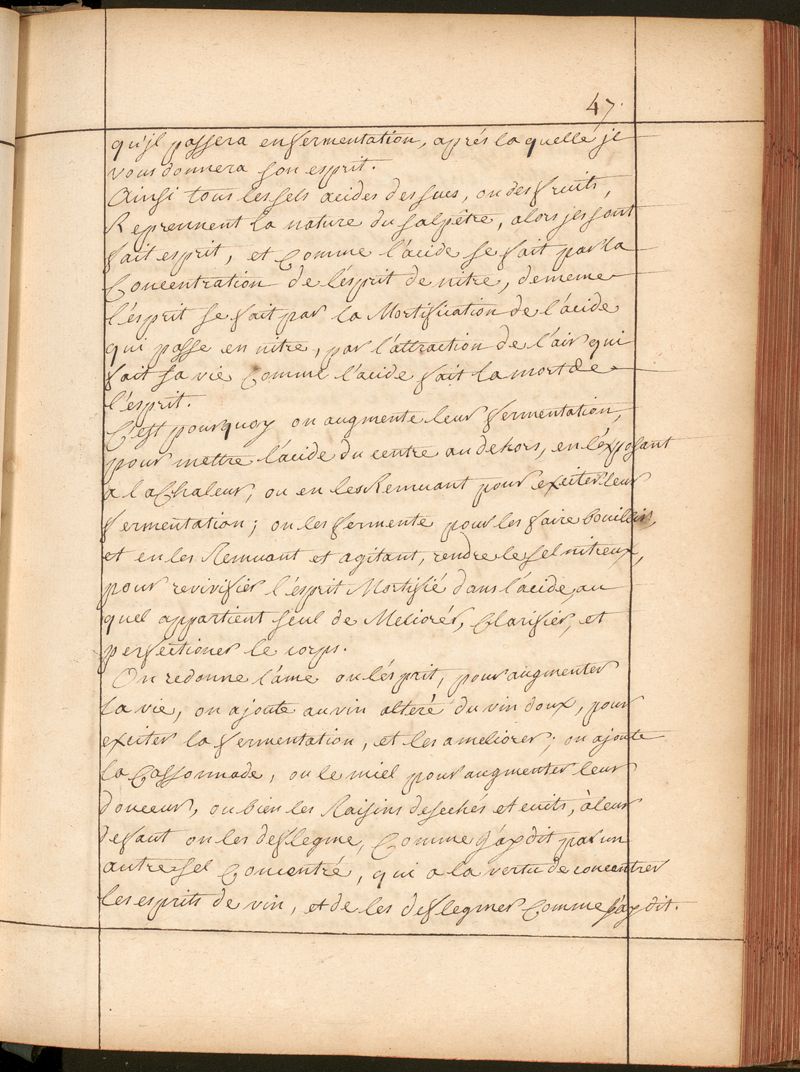 47.
qu'jl passera en fermentation, aprés laquelle jl
vous donnera son esprit.
Ainsi tous les sels acides des sucs, ou des fruits,
Reprennent la nature du salpétre, alors jls sont
fait esprit, et Comme l'acide se fait par la
Concentration de l'ésprit de nitre, de meme
l'ésprit se fait par la Mortification de l'ácide
qui passe en nitre, par l'attraction de l'air qui
fait sa vie Comme l'acide fait la mort de
l'ésprit.
C'est pourquoy on augmente leur fermentation,
pour mettre l'ácide du centre au dehors, en l'éxposant
a la Chaleur; ou en les Remuant pour exciter leur
fermentation; on les fermente pour les faire bouillir,
et en les Remuant et agitant, rendre le sel nitreux,
pour revivifier l'ésprit Mortifié dans l'ácide, au
quel appartient seul de Meliorér, Clarifiér, et
perfectioner le corps.
On redonne l'áme ou l'ésprit, pour augmenter
la vie, on ajoute au vin alteré du vin doux, pour
exciter la fermentation, et les ameliorer; on ajoute
la Cassonnade, ou le miel pour augmenter leur
douceur, ou bien les Raisins desechés et cuits, à leur
defaut on les deflegme, Comme j'áy dit par un
autre sel Concentré, qui a la vertu de concentrer
les esprits de vin, et de les deflegmer Comme j'áy dit.